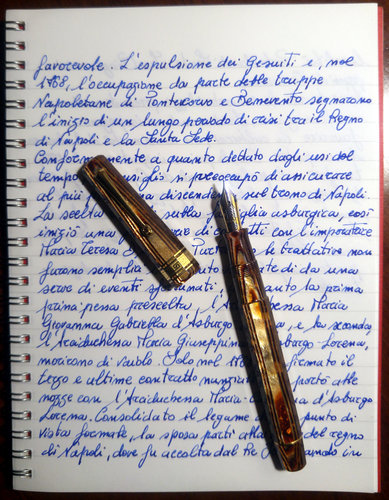 favorevole. L'espulsione dei Gesuiti e, nel
1768, l'occupazione da parte delle truppe
Napoletane di Pontecorvo e Benevento segnarono
l'inizio di un lungo periodo di crisi tra il Regno
di Napoli e la Santa Sede.
Conformemente a quanto dettato dagli usi del
tempo si preoccupò di assicurare
al più discendenza sul trono di Napoli.
La scelta sulla famiglia asburgica, così
iniziò una di contatti con l'imperatrice
Maria Teresa le trattative non
furono semplici di da una
serie di eventi la prima
principessa prescelta, l'Arciduchessa Maria
Giovanna Gabriella d'Asburgo e, la seconda,
l'Arciduchessa Maria Giuseppina Lorena,
morirono di vaiolo. Solo nel firmato il
terzo e ultimo contratto portò alle
nozze con l'Arciduchessa Maria d'Asburgo
Lorena. Consolidato il legame punto di
vista formale, la sposa partì del regno
di Napoli, dove fu accolta dal Re in